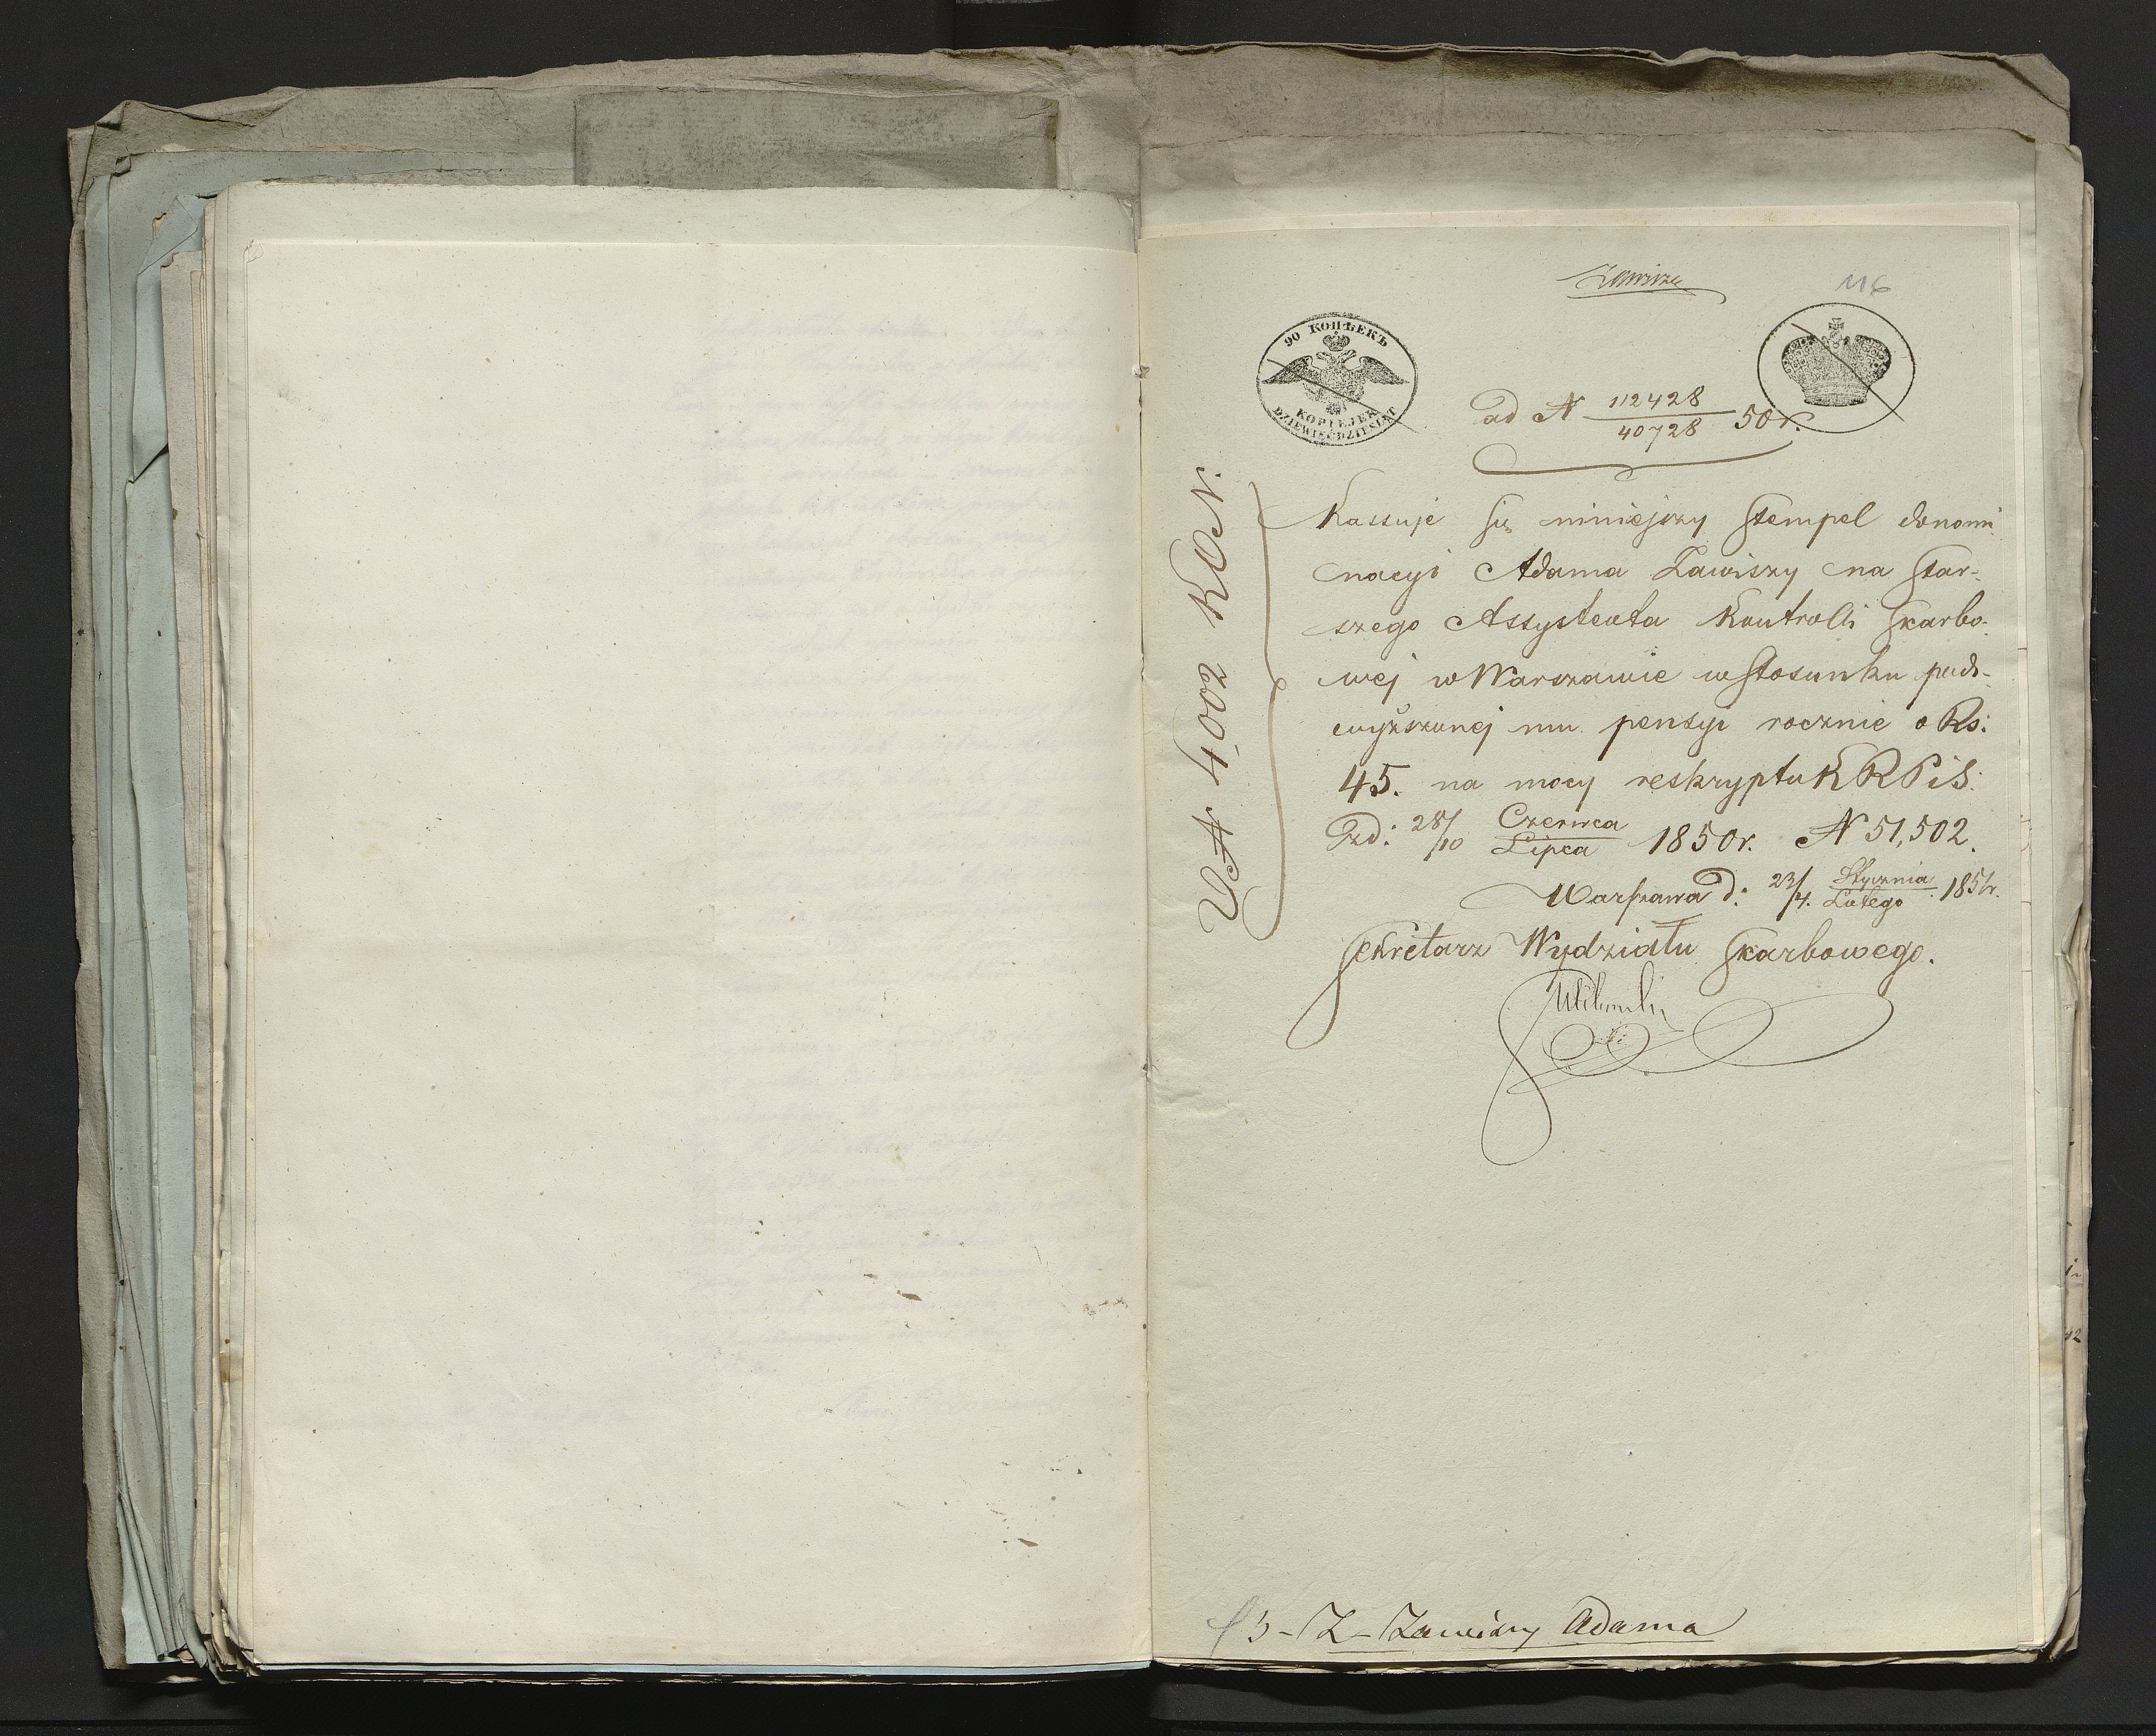 Zawisza
116
90 КОПѢЕКЪ
KOPIEJEK
DZIEWIĘĆDZIESIĄT
ad N 112428/40728 50 r.
Kassuje się niniejszy stempel donomi
nacyi Adama Zawiszy na Star-
szego Assystenta Kontrolli Skarbo-
wej w Warszawie w stosunku pod-
wyższonej mu pensyi rocznie o Rs:
45. na mocy reskryptu KRPiS.
zd: 28/10 Czerwca/Lipca 1850 r. N 51,502.
Warszawa d: 23/4. Stycznia/Lutego 1851 r.
Sekretarz Wydziału Skarbowego.
4,002
Z - Zawiszy Adama